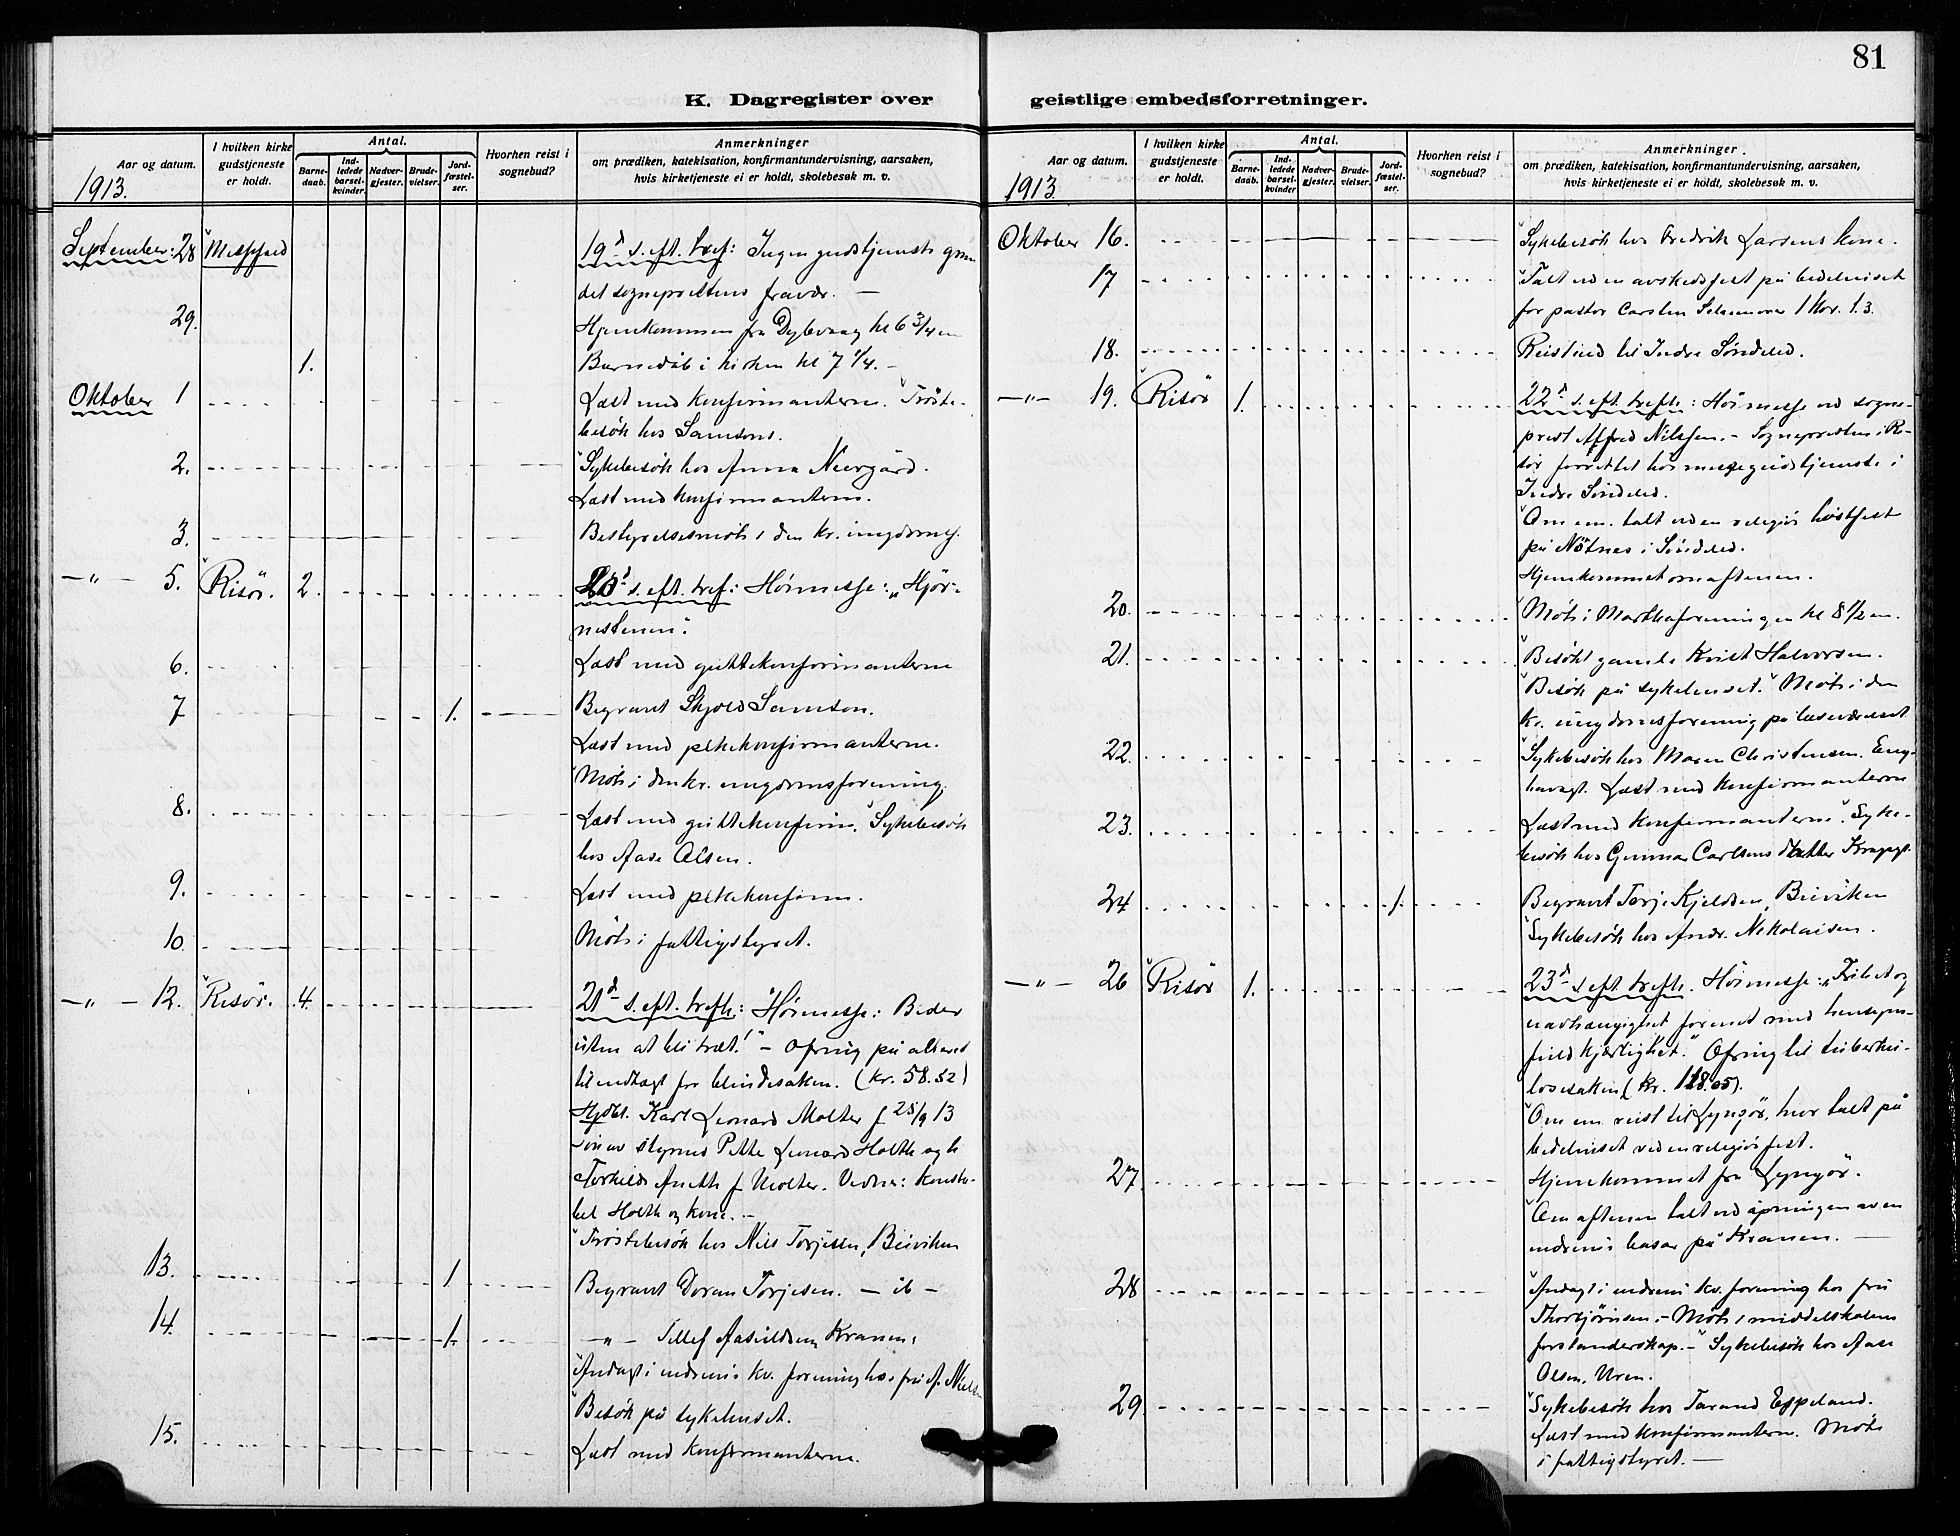 81
K. Dagregister over geistlige embedsforretninger.
Aar og datum.
1913.
I hvilken kirke gudstjeneste er holdt.
Antal.
Barnedaab.
Indledede barselkvinder
Nadvergjester.
Brudevielser.
Jordfæstelser.
Hvorhen reist i sognebud?
Anmerkninger
om prædiken, katekisation, konfirmantundervisning, aarsaken,
hvis kirketjeneste ei er holdt, skolebesøk m. v.
September: 28 Messefald 19d s. eft. tref: Ingen gudstjeneste grun
det sogneprestens fravær. —
29. Hjemkommen fra Dybvaag kl 6 3/4 em
1. Barnedåb i kirken kl 7 1/4. —
Oktober 1 Læst med konfirmanterne. Trøste-
besøk hos Samsons.
2. Sykebesök hos Anna Neergård.
Læst med konfirmanterne.
3. Bestyrelsesmöte i den kr. ungdomsf.
—"— 5. Risör. 2. 20d s. eft. tref: Høimesse: "Hjör-
nestenen".
6. Læst med guttekonfirmanterne
7 1. Begravet Skjold Samson.
Læst med pikekonfirmanterne.
Möte i den kr. ungdomsforening.
8. Læst med guttekonfirm. Sykebesök
hos Aase Olsen.
9. Læst med pikekonfirm.
10. Möte i fattigstyret.
—"— 12. Risör. 4. 21d s. eft. trefh: Høimesse: Beder
uten at bli træt! — Ofring på alteret
til indtægt for blindesaken. (kr. 58.52)
Hjdbt. Karl Leonard Molter f 25/9 13
Torkilds Anette f Molter. Vidner: Konsta-
bel Holth og kone. —
Tröstebesök hos Nils Torjesen, Beiviken
13. 1 Begravet Doran Torjesen. — ib —
14. 1. —"— Tellef Aasvildsen, Kranen.
Andagt i indrem. kv. forening hos fru A. Niels
Besök på sykehuset.
15. Læst med konfirmanterne.
Aar og datum.
1913
I hvilken kirke gudstjeneste er holdt.
Antal.
Barnedaab.
Indledede barselkvinder
Nadvergjester.
Brudevielser.
Jordfæstelser.
Hvorhen reist i sognebud?
Anmerkninger.
om prædiken, katekisation, konfirmantundervisning, aarsaken,
hvis kirketjeneste ei er holdt, skolebesøk m. v.
Oktober 16. Sykebesök hos Fredrik Larsens kone.
17 Talt ved en avskedsfest på bedehuset
for pastor Carsten
18. Reist ind til Indre Søndeled.
—"— 19. Risör 1. 22d s. eft. trefh: Høimesse ved sogne-
prest Alfred Nilssen. — Sognepresten i Ri-
sør forrettet høimessegudstjeneste i
Indre Söndeled.
Om em. talt ved en religiös höstfest
på Nötnes i Söndeled.
Hjemkommet om aftenen.
20. Möte i Marthaforeningen kl 8 1/2 em.
21. Besökt gamle Kvilt Halvorsen.
Besök på sykehuset. Möte i den
kr. ungdomsforening på læseværelset
22. Sykebesök hos Maren Christensen, Eng-
havsgt. Læst med konfirmanterne
23. Læst med konfirmanterne. Syke-
besök hos Gunnar Carlsens datter
24 1. Begravet Terje Kjeldsen, Beiviken
Sykebesök hos Andr. Nikolaisen.
—"— 26 Risör 1. 23d s. eft. trefh. Høimesse: "Frihet og
uavhængighet forenet med hensyns-
fuld kjærlighet." Ofring til tuberku-
losesaken (kr. 118.05).
Om em reist til Lyngör, hvor talt på
bedehuset ved en religiös fest.
27. Hjemkommet fra Lyngör.
Om aftenen talt ved åpningen av en
indrem. basar på Kranen. —
28 Andagt i indrem. kv. forening hos fru
Thorbjörnsen. — Möte i middelskolens
forstanderskap. — Sykebesök hos Aase
Olsen, Uren.
29 Sykebesök hos Tarand Eppeland.
Læst med konfirmanterne. Möte
i fattigstyret. —